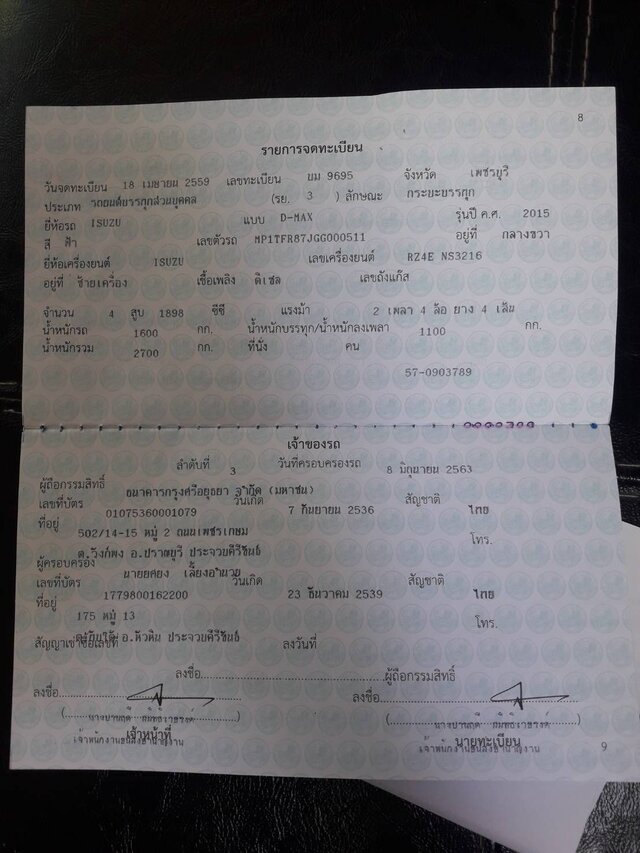 8
รายการจดทะเบียน
วันจดทะเบียน 18 เมษายน 2559 เลขทะเบียน บม 9695 จังหวัด เพชรบุรี
ประเภท รถยนต์บรรทุกส่วนบุคคล (รย. 3 ) ลักษณะ กระบะบรรทุก
ยี่ห้อรถ ISUZU แบบ D-MAX รุ่นปี ค.ศ. 2015
สี ฟ้า เลขตัวรถ MP1TFR87JGG000511 อยู่ที่ กลางขวา
ยี่ห้อเครื่องยนต์ ISUZU เลขเครื่องยนต์ RZ4E NS3216
อยู่ที่ ซ้ายเครื่อง เชื้อเพลิง ดีเซล เลขถังแก๊ส
จำนวน 4 สูบ 1898 ซีซี แรงม้า 2 เพลา 4 ล้อ ยาง 4 เส้น
น้ำหนักรถ 1600 กก. น้ำหนักบรรทุก/น้ำหนักลงเพลา 1100 กก.
น้ำหนักรวม 2700 กก. ที่นั่ง คน
57-0903789
เจ้าของรถ
ลำดับที่ 3 วันที่ครอบครองรถ 8 มิถุนายน 2563
ผู้ถือกรรมสิทธิ์ ธนาคารกรุงศรีอยุธยา จำกัด (มหาชน)
เลขที่บัตร 01075360001079 วันเกิด 7 กันยายน 2536 สัญชาติ ไทย
ที่อยู่ 502/14-15 หมู่ 2 ถนนเพชรเกษม โทร.
ต.วังก์พง อ.ปราณบุรี ประจวบคีรีขันธ์
ผู้ครอบครอง นายยศยง เลี้ยงอำนวย
เลขที่บัตร 1779800162200 วันเกิด 23 ธันวาคม 2539 สัญชาติ ไทย
ที่อยู่ 175 หมู่ 13 โทร.
อ.หัวหิน ประจวบคีรีขันธ์
สัญญาเช่าซื้อเลขที่ ลงวันที่
ลงชื่อ ผู้ถือกรรมสิทธิ์
ลงชื่อ ลงชื่อ
เจ้าหน้าที่ นายทะเบียน
เจ้าพนักงานขนส่งชำนาญงาน เจ้าพนักงานขนส่งชำนาญงาน
9